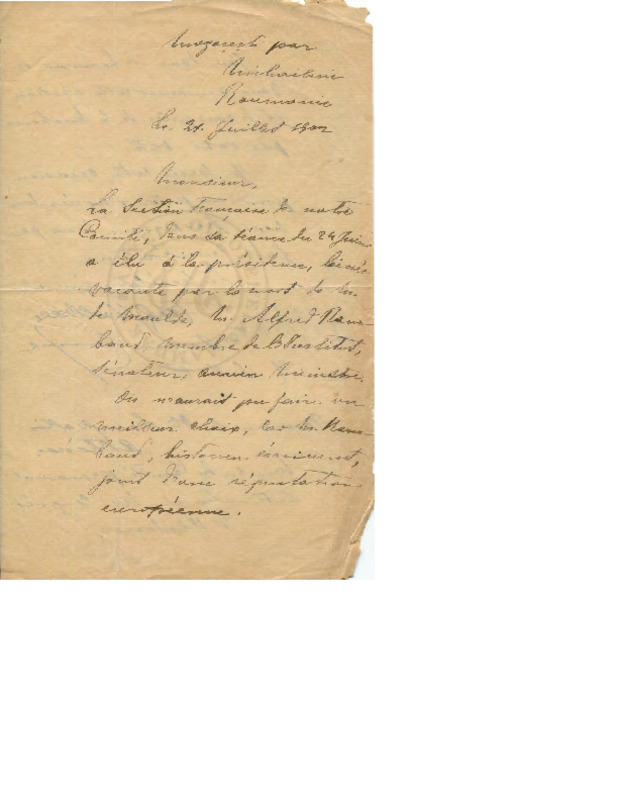 par
Mihaileni
Roumanie
Le 21 Juillet 1902
Monsieur,
La Section Française de notre
Comité, dans sa séance du 24 Juin
a élu à la présidence, laissée
vacante par la mort de M.
de M. Alfred Ram-
baud membre de l'Institut,
sénateur, ancien ministre.
On n'aurait pu faire un
meilleur choix, car M. Ram-
baud, historien éminent,
jouit d'une réputation
européenne.